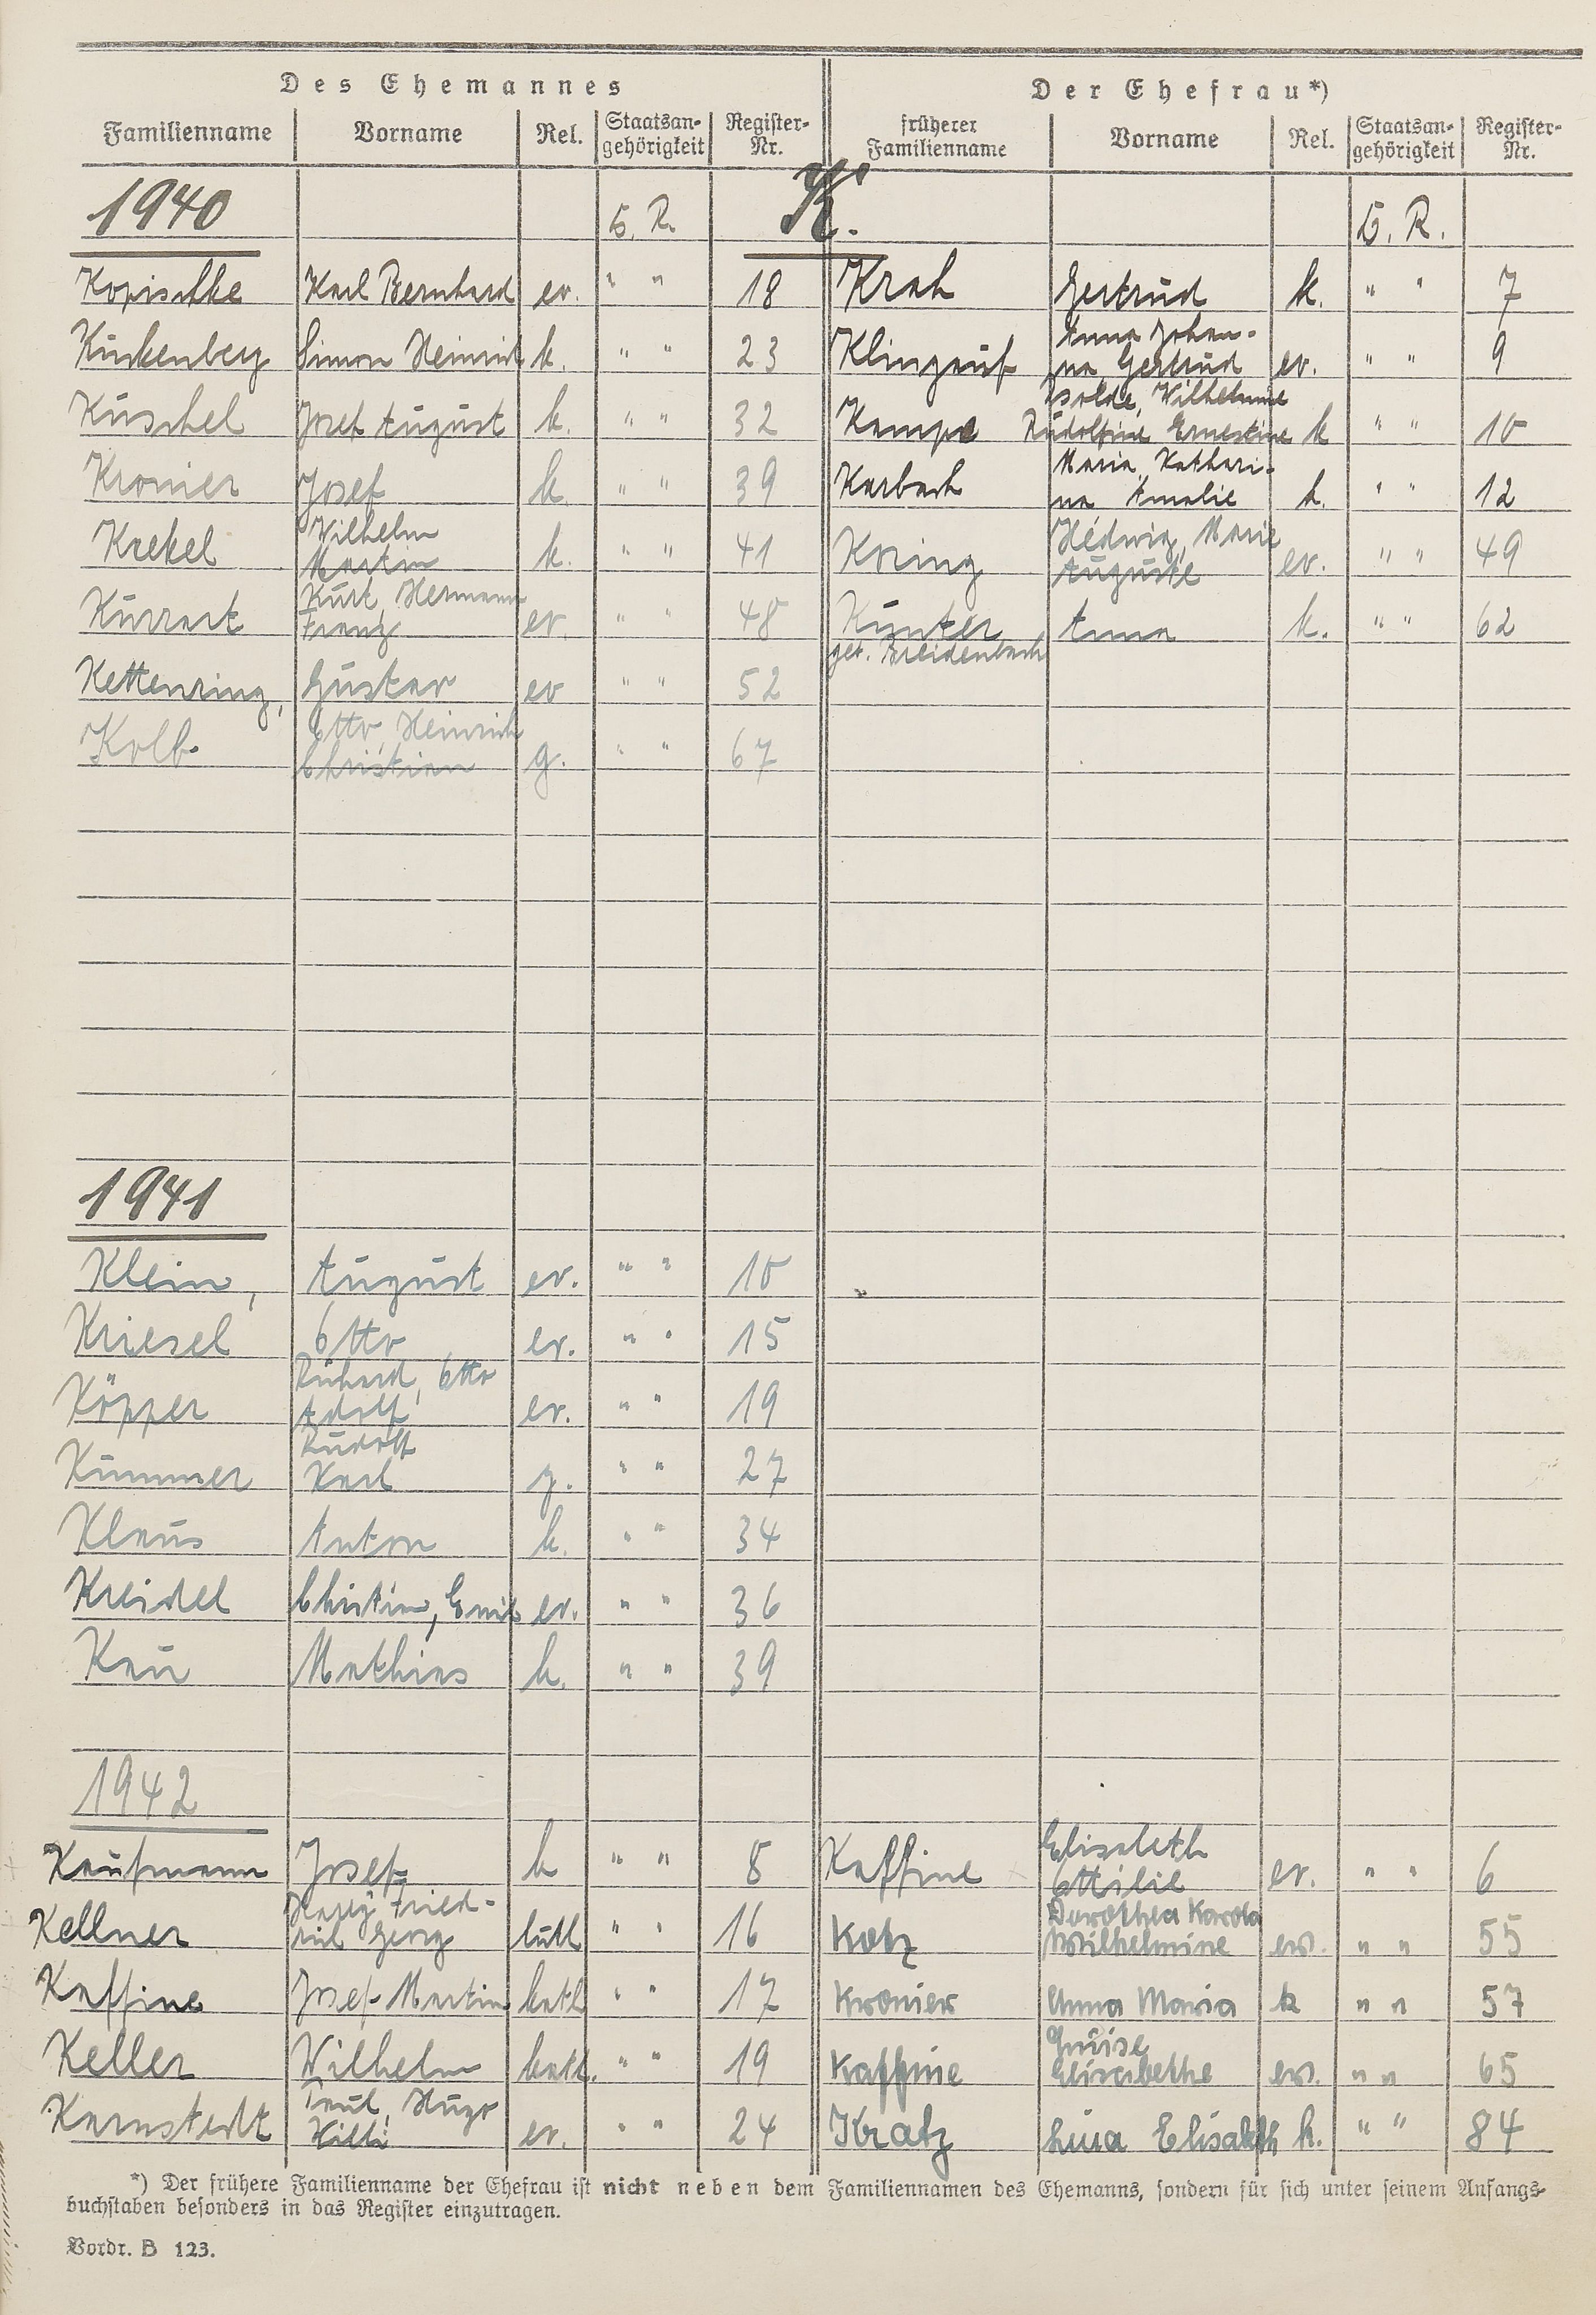 Des Ehemannes Der Ehefrau*)
Familienname Vorname Rel. Staatsan-gehörigkeit Register-Nr. früherer Familienname Vorname Rel. Staatsan-gehörigkeit Register-Nr.
K.
1940 D. R. D. R.
Kopischke Karl Bernhard ev. " " 18 Krah Gertrud k. " " 7
Kuckenberg Simon Heinrich k. " " 23 Klingauf Anna Johan-
na Gertrud ev. " " 9
Kuschel Josef August k. " " 32 Kampe Isolde, Wilhelmine
Rudolfine Ernestine k " " 10
Kronier Josef k. " " 39 Karbach Maria, Kathari-
na Amalie k. " " 12
Krekel Wilhelm
Martin k. " " 41 Koring Hedwig, Marie
Auguste ev. " " 49
Kurrart Kurt, Hermann
Franz ev. " " 48 Künter Anna k. " " 62
geb. Breidenbach
Kettenring, Gustav ev " " 52
Kolb Otto Heinrich
Christian g. " " 67
1941
Klein, August ev. " " 10
Kriesel Otto ev. " " 15
Köpper Richard, Otto
Adolf ev. " " 19
Kummer Rudolf
Karl g. " " 27
Klaus Anton k. " " 34
Kreidel Christian, Emil ev. " " 36
Kau Mathias k. " " 39
1942
Kaufmann Josef k " " 8 Kaffine Elisabeth
Ottilie ev. " " 6
Kellner Fried-
rich Georg luth " " 16 Kotz Dorothea Karola
Wilhelmine ev. " " 55
Kaffine Josef Martin kath " " 17 Kronier Anna Maria k " " 57
Keller Wilhelm kath. " " 19 Kaffine Luise
Elisabethe ev. " " 65
Karnstedt Paul, Hugo
Willi ev. " " 24 Kratz Lina Elisabeth k. " " 84
*) Der frühere Familienname der Ehefrau ist nicht neben dem Familiennamen des Ehemanns, sondern für sich unter seinem Anfangs-
buchstaben besonders in das Register einzutragen.
Vordr. B 123.